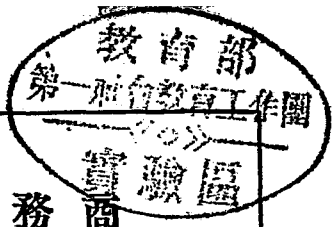 教育部
第一社會教育工作團
實驗區
商務